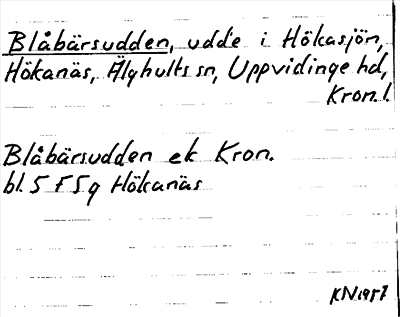 Blåbärsudden, udde i Hökasjön,
Hökanäs, Älghults sn, Uppvidinge hd,
Kron. l.
Blåbärsudden ek Kron.
bl. 5 F 5 g Hökanäs
KN 1957